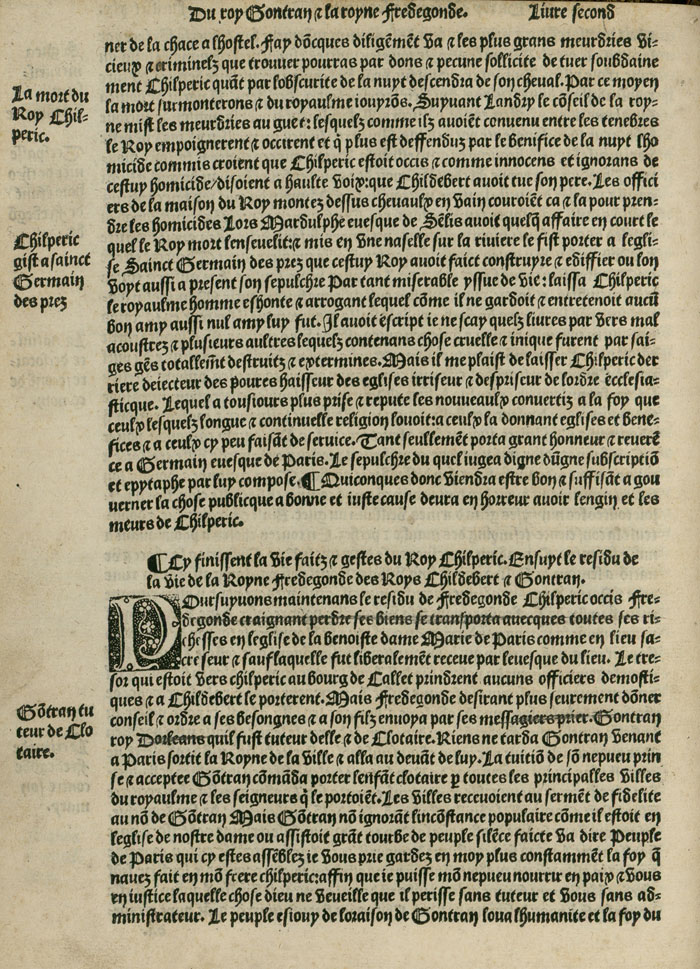 Du roy Gontran & la royne Fredegonde. Liure second
ner de la chace a lhostel. Fay dõcques diligẽmẽt va & les plus grans meurdries vi-
cieux & criminelz que trouuer pourras par dons & pecune sollicite de tuer soubdaine
ment Chilperic quãt par lobscurite de la nuyt descendra de son cheual. Par ce moyen
la mort surmonterons & du royaulme iouyrõs. Suyuant Landry le cõseil de la roy-
ne mist les meurdries au guet: lesquelz comme ilz auoiẽt conuenu entre les tenebres
le Roy empoignerent & occirent et q̃ plus est deffenduz par le benifice de la nuyt lho
micide commis croient que Chilperic estoit occis & comme innocens et ignorans de
cestuy homicide/disoient a haulte voix: que Childebert auoit tue son pere. Les offici
ers de la maison du Roy montez dessus cheuaulx en vain couroiẽt ca & la pour pren-
dre les homicides Lors Mardulphe euesque de Sẽlis auoit quelq̃ affaire en court le
quel le Roy mort lenseuelit: & mis en vne naselle sur la riuiere le fist porter a legli-
se Sainct Germain des prez que cestuy Roy auoit faict construyre & ediffier ou lon
voyt aussi a present son sepulchre Par tant miserable yssue de vie: laissa Chilperic
le royaulme homme eshonte & arrogant lequel cõme il ne gardoit & entretenoit aucũ
bon amy aussi nul amy luy fut. Il auoit escript ie ne scay quelz liures par vers mal
acoustrez & plusieurs aultres lesquelz contenans chose cruelle & inique furent par sai-
ges gẽs totallemẽt destruitz & extermines. Mais il me plaist de laisser Chilperic der
riere deiecteur des poures haisseur des eglises irriseur & despriseur de lordre ecclesia-
sticque. Lequel a tousiours plus prise & repute les nouueaulx conuertiz a la foy que
ceulx lesquelz longue & continuelle religion louoit: a ceulx la donnant eglises et bene-
fices & a ceulx cy peu faisãt de seruice. Tant seullemẽt porta grant honneur & reuerẽ
ce a Germain euesque de Paris. Le sepulchre du quel iugea digne dũgne subscriptiõ
et epytaphe par luy compose. ¶ Quiconques donc viendra estre bon & suffisãt a gou
uerner la chose publicque a bonne et iuste cause deura en horreur auoir lengin et les
meurs de Chilperic.
La mort du
Roy Chil-
peric.
Chilperic
gist a sainct
Germain
des prez
¶ Cy finissent la vie faitz & gestes du Roy Chilperic. Ensuyt le residu de
la vie de la Royne Fredegonde des Roys Childebert & Gontran.
Poursuyuons maintenans le residu de Fredegonde Chilperic occis Fre-
degonde craignant perdre ses biens se transporta auecques toutes ses ri-
chesses en leglise de la benoiste dame Marie de Paris comme en lieu sa-
cre seur & sauf laquelle fut liberalemẽt receue par leuesque du lieu. Le tre-
sor qui estoit vers chilperic au bourg de Callet prindrent aucuns officiers domesti-
ques & a Childebert le porterent. Mais Fredegonde desirant plus seurement dõner
conseil & ordre a ses besongnes & a son filz enuoya par ses messagiers prier Gontran
roy Dorleans quil fust tuteur delle & de Clotaire. Riens ne tarda Gontran venant
a Paris sortit la Royne de la ville & alla au deuãt de luy. La tuitiõ de sõ nepueu prin
se & acceptee Gõtran cõmãda porter lenfãt clotaire p toutes les principalles villes
du royaulme & les seigneurs q̃ le portoiẽt. Les villes receuoient au sermẽt de fidelite
au nõ de Gõtran Mais Gontran nõ ignorãt lincõstance populaire cõme il estoit en
leglise de nostre dame ou assistoit grãt tourbe de peuple silẽce faicte va dire Peuple
de Paris qui cy estes assẽblez ie vous prie gardez en moy plus constãment la foy q̃
nauez fait en mõ frere chilperic: affin que ie puisse mõ nepueu nourrir en paix & vous
en iustice laquelle chose dieu ne veueille que il perisse sans tuteur et vous sans ad-
ministrateur. Le peuple esiouy de loraison de Gontran loua lhumanite et la foy du
Gõtran tu
teur de Clo
taire.